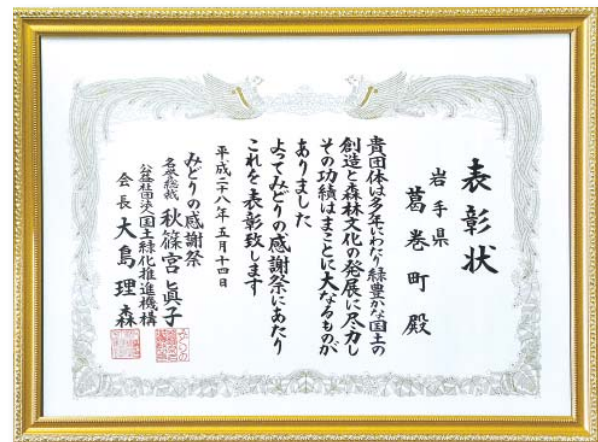 表彰状
岩手県
葛巻町殿
貴団体は多年にわたり緑豊かな国土の
創造と森林文化の発展に尽力し
その功績はまことに大なるものが
ありました
よってみどりの感謝祭にあたり
これを表彰致します
平成二十八年五月十四日
みどりの感謝祭
名誉総裁 秋篠宮眞子
公益社団法人国土緑化推進機構
会長 大島理森